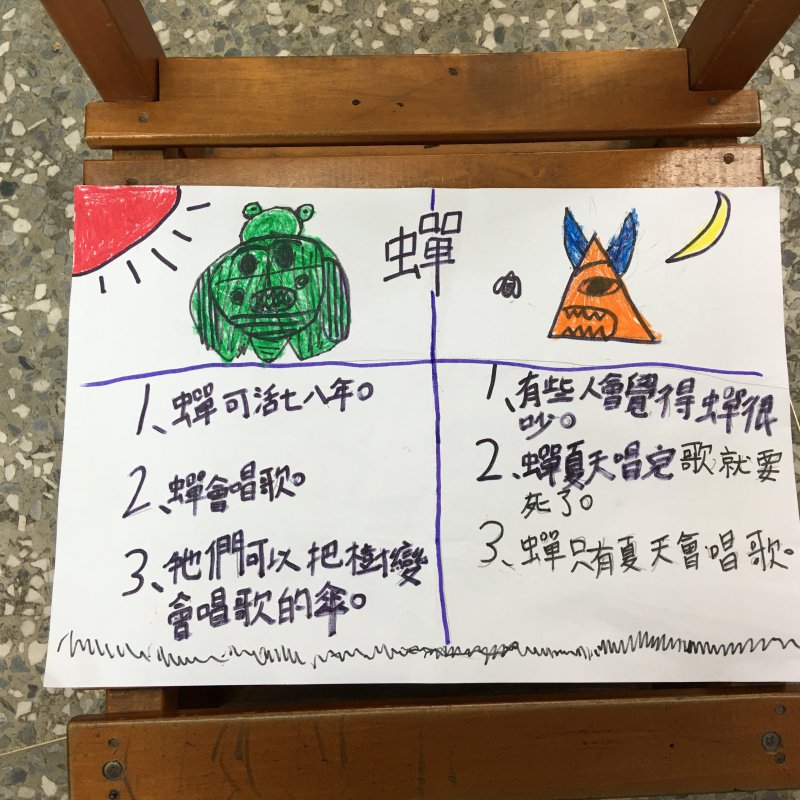 蟬
1、蟬可活七八年。
2、蟬會唱歌。
3、牠們可以把樹變
會唱歌的傘。
1、有些人會覺得蟬很
吵。
2、蟬夏天唱完歌就要
死了。
3、蟬只有夏天會唱歌。